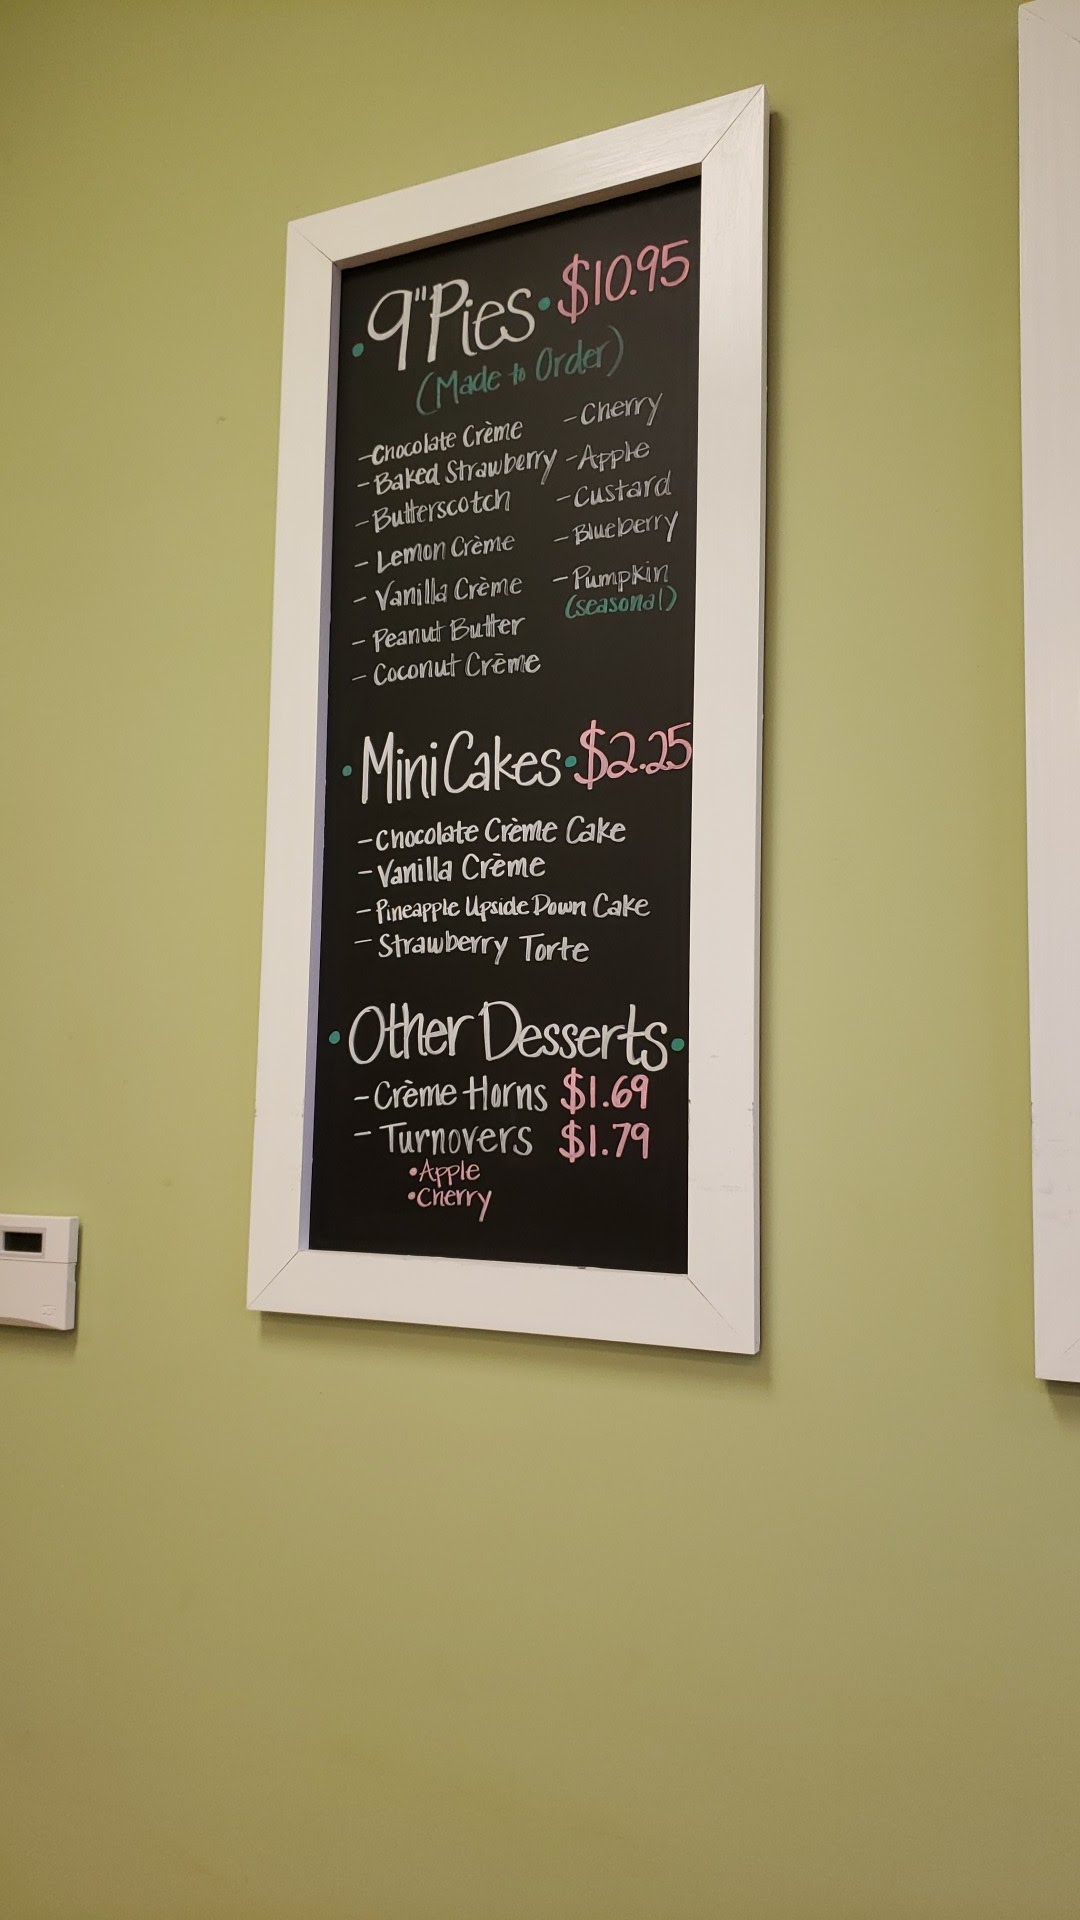 9" Pies • $10.95
(Made to Order)
- Chocolate Crème
- Baked Strawberry
- Butterscotch
- Lemon Crème
- Vanilla Crème
- Peanut Butter
- Coconut Crème
- Cherry
- Apple
- Custard
- Blueberry
- Pumpkin
(seasonal)
• Mini Cakes • $2.25
- Chocolate Crème Cake
- Vanilla Crème
- Pineapple Upside Down Cake
- Strawberry Torte
• Other Desserts •
- Crème Horns $1.69
- Turnovers $1.79
• Apple
• Cherry